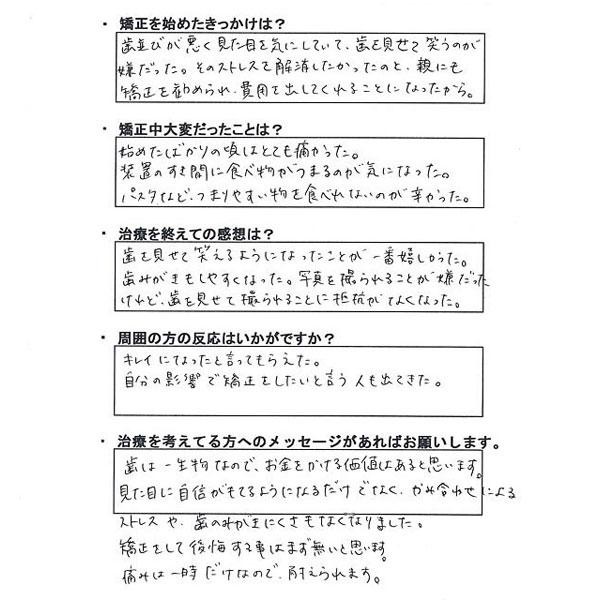 ・ 矯正を始めたきっかけは？
歯並びが悪く見た目を気にしていて、歯を見せて笑うのが
嫌だった。そのストレスを解消したかったのと、親にも
矯正を勧められ、費用を出してくれることになったから。
・ 矯正中大変だったことは？
始めたばかりの頃はとても痛かった。
装置のすき間に食べ物がつまるのが気になった。
パスタなど、つまりやすい物を食べれないのが辛かった。
・ 治療を終えての感想は？
歯を見せて笑えるようになったことが一番嬉しかった。
歯みがきもしやすくなった。写真を撮られることが嫌だった
けれど、歯を見せて撮られることに抵抗がなくなった。
・ 周囲の方の反応はいかがですか？
キレイになったと言ってもらえた。
自分の影響で矯正をしたいと言う人も出てきた。
・ 治療を考えてる方へのメッセージがあればお願いします。
歯は一生物なので、お金をかける価値はあると思います。
見た目に自信がもてるようになるだけでなく、かみ合わせによる
ストレスや、歯のみがきにくさもなくなりました。
矯正をして後悔する事はまず無いと思います。
痛みは一時だけなので、耐えられます。